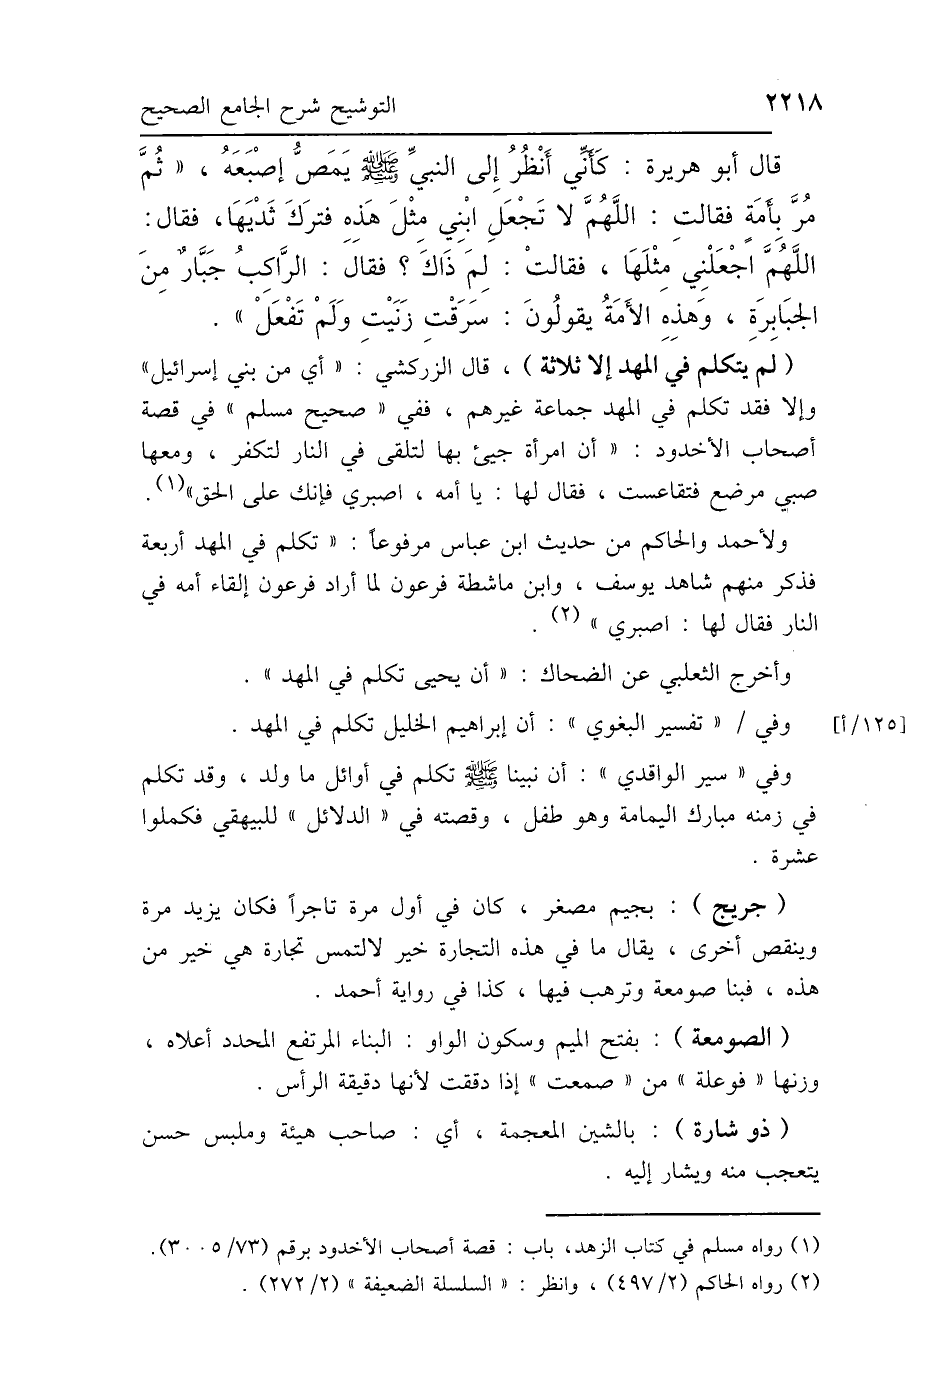 ٢٢١٨ التوشيح شرح الجامع الصحيح
قال أبو هريرة : كَأَنِّي أَنْظُرُ إلى النبيِّ ﷺ يَمَصُّ إصْبَعَهُ ، « ثُمَّ
مُرَّ بِأَمَةٍ فقالتِ : اللَّهُمَّ لا تَجْعَلِ ابْنِي مِثْلَ هَذِهِ فتركَ ثَدْيَهَا، فقال:
اللَّهُمَّ اجْعَلْنِي مِثْلَهَا ، فقالتْ : لِمَ ذَاكَ ؟ فقال : الرَّاكِبُ جَبَّارٌ مِنَ
الجَبَابِرَةِ ، وَهَذِهِ الأَمَةُ يقولُونَ : سَرَقْتِ زَنَيْتِ وَلَمْ تَفْعَلْ » .
( لم يتكلم في المهد إلا ثلاثة ) ، قال الزركشي : « أي من بني إسرائيل»
وإلا فقد تكلم في المهد جماعة غيرهم ، ففي « صحيح مسلم » في قصة
أصحاب الأخدود : « أن امرأة جيئ بها لتلقى في النار لتكفر ، ومعها
صبي مرضع فتقاعست ، فقال لها : يا أمه ، اصبري فإنك على الحق»(١).
ولأحمد والحاكم من حديث ابن عباس مرفوعاً : « تكلم في المهد أربعة
فذكر منهم شاهد يوسف ، وابن ماشطة فرعون لما أراد فرعون إلقاء أمه في
النار فقال لها : اصبري » (٢) .
وأخرج الثعلبي عن الضحاك : « أن يحيى تكلم في المهد » .
وفي / « تفسير البغوي » : أن إبراهيم الخليل تكلم في المهد . [١٢٥/أ]
وفي « سير الواقدي » : أن نبينا ﷺ تكلم في أوائل ما ولد ، وقد تكلم
في زمنه مبارك اليمامة وهو طفل ، وقصته في « الدلائل » للبيهقي فكملوا
عشرة .
( جريج ) : بجيم مصغر ، كان في أول مرة تاجراً فكان يزيد مرة
وينقص أخرى ، يقال ما في هذه التجارة خير لالتمس تجارة هي خير من
هذه ، فبنا صومعة وترهب فيها ، كذا في رواية أحمد .
( الصومعة ) : بفتح الميم وسكون الواو : البناء المرتفع المحدد أعلاه ،
وزنها « فوعلة » من « صمعت » إذا دققت لأنها دقيقة الرأس .
( ذو شارة ) : بالشين المعجمة ، أي : صاحب هيئة وملبس حسن
يتعجب منه ويشار إليه .
(١) رواه مسلم في كتاب الزهد، باب : قصة أصحاب الأخدود برقم (٧٣/ ٣٠٠٥).
(٢) رواه الحاكم (٤٩٧/٢) ، وانظر : « السلسلة الضعيفة » (٢٧٢/٢) .